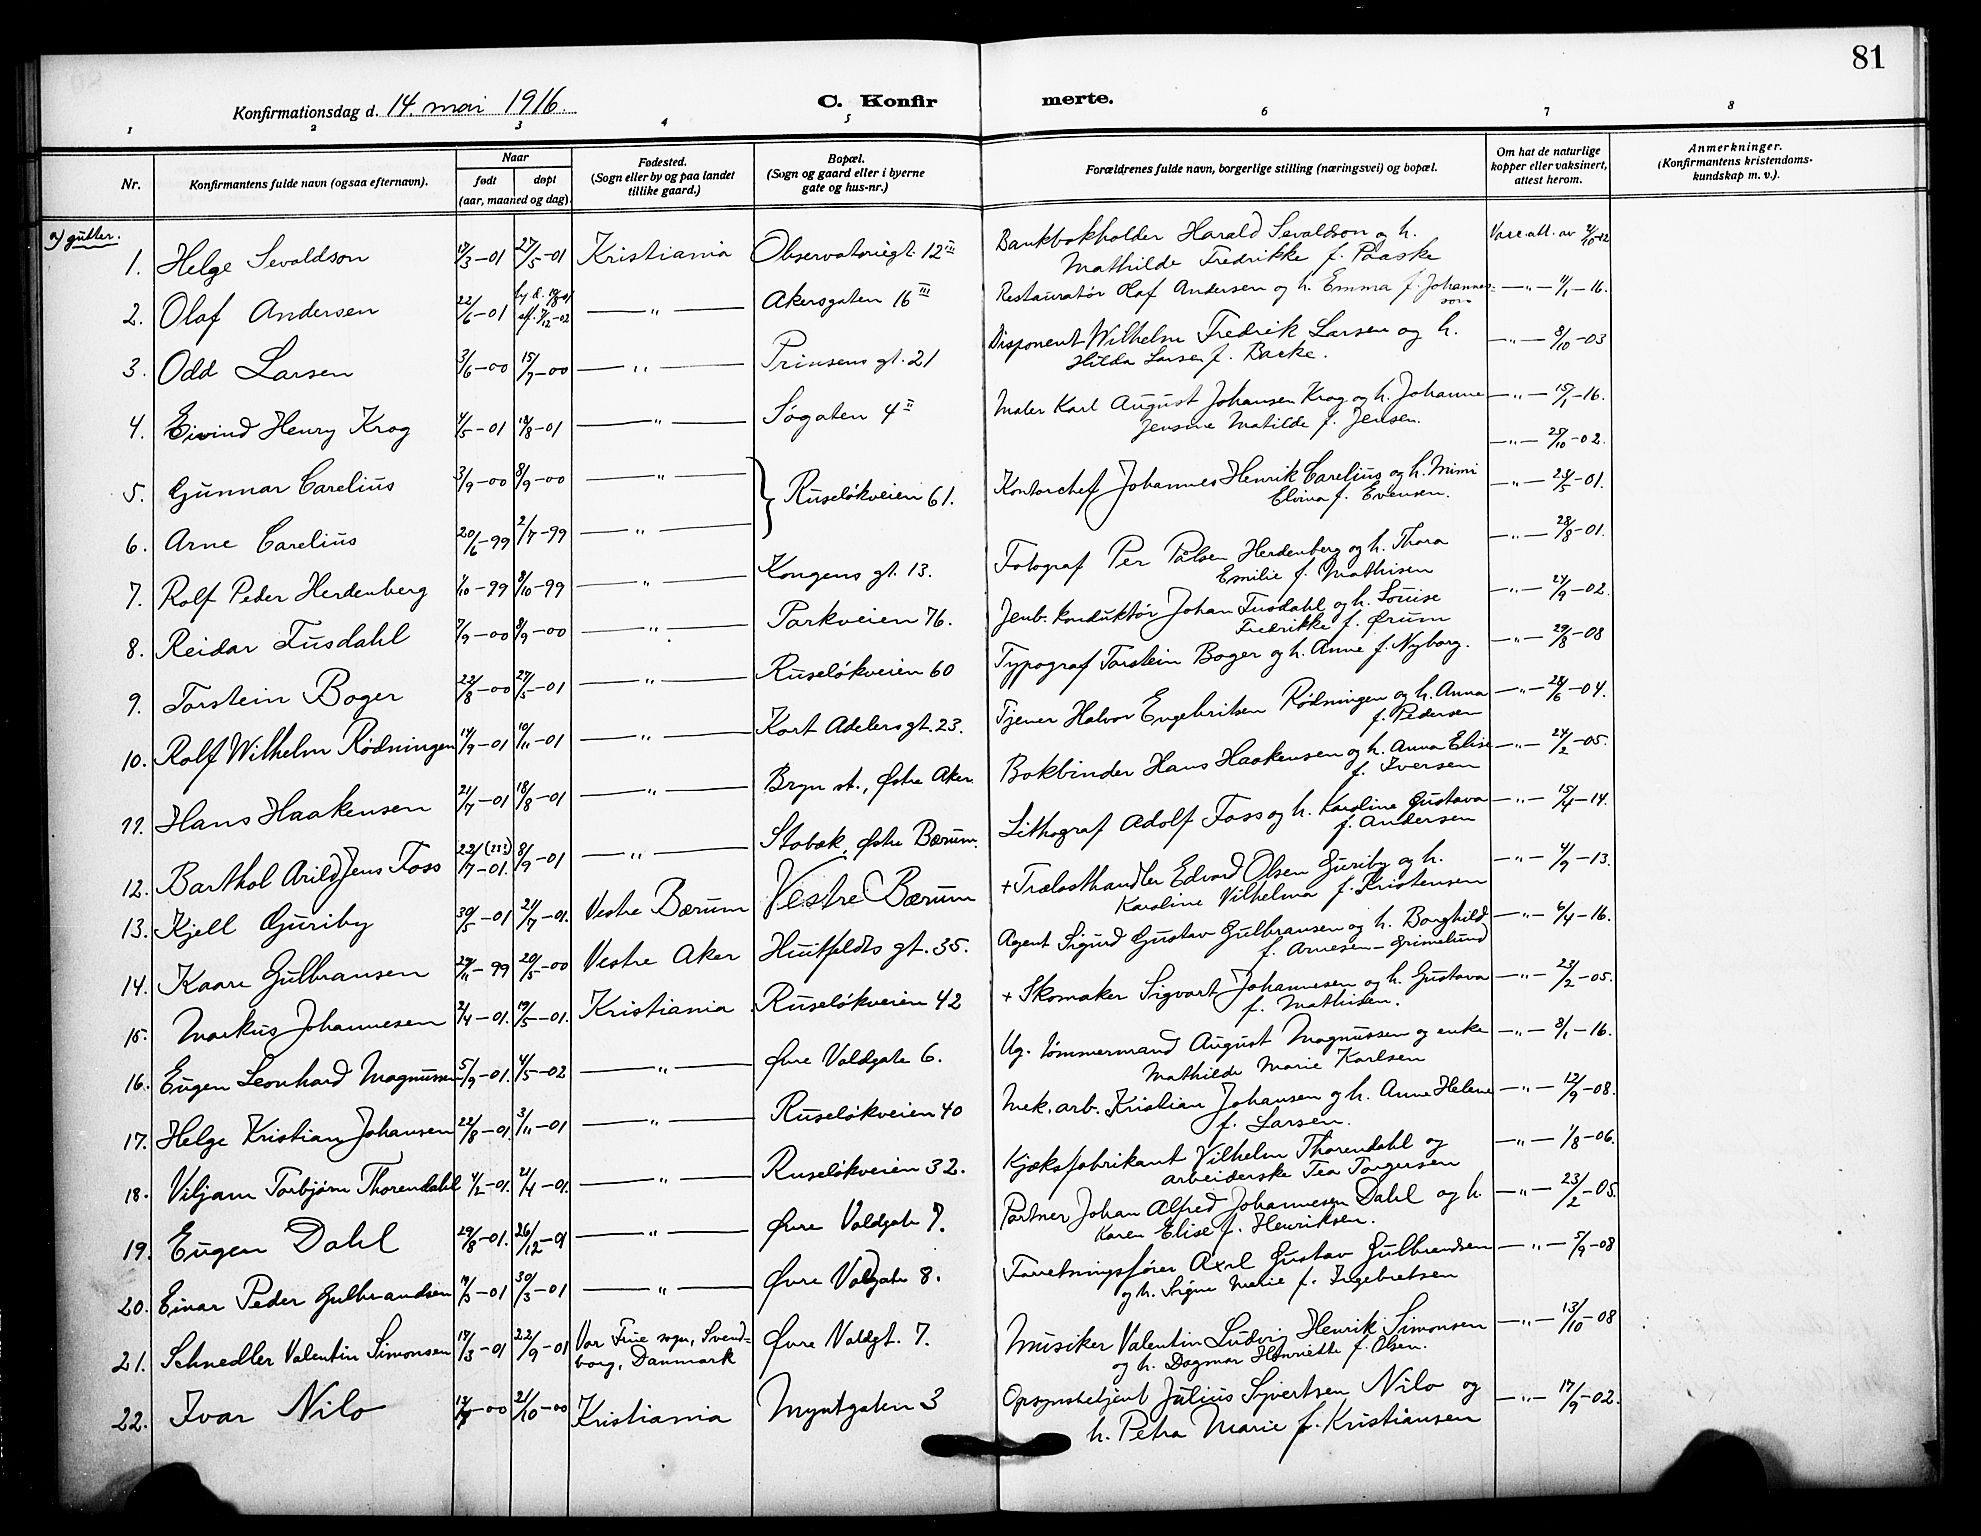 81
Konfirmationsdag d. 14. mai 1916.
C. Konfirmerte.
1 2 3 4 5 6 7 8
Nr.
Konfirmantens fulde navn (ogsaa efternavn).
Naar
født døpt
(aar, maaned og dag).
Fødested.
(Sogn eller by og paa landet
tillike gaard.)
Bopæl.
(Sogn og gaard eller i byerne
gate og hus-nr.)
Forældrenes fulde navn, borgerlige stilling (næringsvei) og bopæl.
Om hat de naturlige
kopper eller vaksinert,
attest herom.
Anmerkninger.
(Konfirmantens kristendoms-
kundskap m. v.).
a) gutter.
1. Helge Sevaldson /3-01 27/5-01 Kristiania Observatoriegt. 12 III Bankbokholder Harald Sevaldson og h.
Mathilde Fredrikke f. Paaske
Vacc. att. av
2. Olaf Andersen 22/6-01 —"— Akersgaten 16 III Restauratør Olaf Andersen og h. Emma f. Johannes-
son
—"— 11/1-16.
3. Odd Larsen 3/6-00 15/7-00 —"— Prinsens gt. 21 Disponent Wilhelm Fredrik Larsen og h.
Hilda Larsen f. Backe.
—"— 8/10-03
4. Eivind Henry Krog 4/5-01 18/8-01 —"— Søgaten 4 II Maler Karl August Johansen Krog og h. Johanne
Jensine Matilde f. Jensen.
—"— 15/1-16.
—"— 25/10-02.
5. Gunnar Carelius 3/9-00 8/9-00 —"— Ruseløkveien 61. Kontorchef Johannes Henrik Carelius og h. Mimi
Elvina f. Evensen.
—"— 23/5-01.
6. Arne Carelius 20/6-99 2/7-99 —"—
—"— 28/8-01.
7. Rolf Peder Herdenberg 1/10-99 8/10-99 —"— Kongens gt. 13. Fotograf Per Pålsen Herdenberg og h. Thora
Emilie f. Mathisen
—"— 24/9-02.
8. Reidar Tusdahl 7/9-00 8/9-00 —"— Parkveien 76. Jenb. konduktør Johan Tusdahl og h. Louise
Fredrikke f. Ørum
—"— 29/8-08
9. Torstein Boger 22/8-00 27/5-01 —"— Ruseløkveien 60 Typograf Torstein Boger og h. Anne f. Nyborg.
10. Rolf Wilhelm Rødningen 14/9-01 10/11-01 —"— Kort Adelers gt. 23. Tjener Halvor Engebritsen Rødningen og h. Anna
f. Pedersen
—"— 28/6-04.
11. Hans Haakensen 21/7-01 18/8-01 —"— Bryn st., Østre Aker. Bokbinder Hans Haakensen og h. Anna Elise
f. Iversen
—"— 24/2-05.
12. Barthol Arild Jens Foss 22/7-01. (23?) 8/9-01 —"— Stabæk, Østre Bærum. Lithograf Adolf Foss og h. Karoline Gustava
f. Andersen
—"— 15/4-14.
13. Kjell Guriby 30/5-01 21/7-01. Vestre Bærum Vestre Bærum + Trælasthandler Edvard Olsen Guriby og h.
Karoline Vilhelma f. Kristensen
—"— 4/9-13.
14. Kaare Gulbransen 29/11-99 20/5-00 Vestre Aker Huitfeldts gt. 35. Agent Sigurd Gustav Gulbransen og h. Borghild
f. Arnesen-Grimelund
—"— 6/4-16.
15. Markus Johannesen 2/4-01. 19/5-01. Kristiania Ruseløkveien 42 + Skomaker Sigvart Johannesen og h. Gustava
f. Mathisen.
—"— 23/2-05.
16. Eugen Leonhard Magnussen 5/9-01. 4/5-02 —"— Øvre Voldgate 6. Ug. tømmermand August Magnussen og enke
Mathilde Marie Karlsen
—"— 8/1-16.
17. Helge Kristian Johansen 22/8-01. 3/11-01 —"— Ruseløkveien 40 Mek. arb. Kristian Johansen og h. Anne Helene
f. Larsen.
—"— 12/9-08.
18. Viljam Torbjørn Thorendahl 4/2-01. 21/4-01. —"— Ruseløkveien 32. Kjæksfabrikant Vilhelm Thorendahl og
arbeiderske Tea Torgersen
—"— 1/8-06.
19. Eugen Dahl 29/8-01. 26/12-01 —"— Øvre Voldgate 7. Portner Johan Alfred Johannesen Dahl og h.
Karen Elise f. Henriksen.
—"— 23/2-05.
20. Einar Peder Gulbrandsen /3-01 30/3-01 —"— Øvre Voldgate 8. Forretningsfører Axel Gustav Gulbrandsen
og h. Signe Marie f. Ingebretsen
—"— 5/9-08
21. Schnedler Valentin Simonsen 17/3-01 22/9-01 Vor Frue sogn, Svend-
borg, Danmark
Øvre Voldgt. 7. Musiker Valentin Ludvig Henrik Simonsen
og h. Dagmar Henriette f. Olsen.
—"— 13/10-08
22. Ivar Nilo 21/10-00 Kristiania Myntgaten 3 Opsynsbetjent Julius Syvertsen Nilo og
h. Petra Marie f. Kristiansen
—"— 17/9-02.